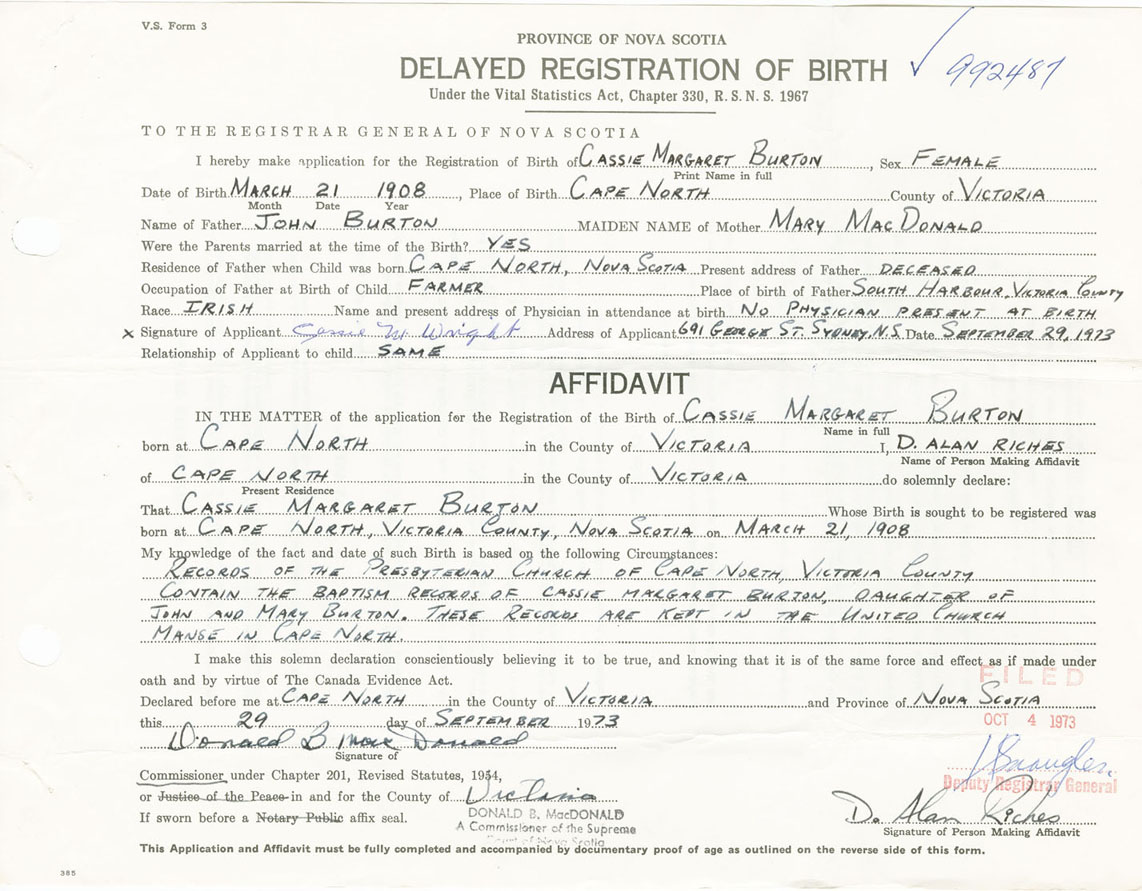 V.S. Form 3
PROVINCE OF NOVA SCOTIA
DELAYED REGISTRATION OF BIRTH ✓ 992487
Under the Vital Statistics Act, Chapter 330, R. S. N. S. 1967
TO THE REGISTRAR GENERAL OF NOVA SCOTIA
I hereby make application for the Registration of Birth of CASSIE MARGARET BURTON, Sex FEMALE
Print Name in full
Date of Birth MARCH 21 1908, Place of Birth CAPE NORTH County of VICTORIA
Month Date Year
Name of Father JOHN BURTON MAIDEN NAME of Mother MARY MACDONALD
Were the Parents married at the time of the Birth? YES
Residence of Father when Child was born CAPE NORTH, NOVA SCOTIA Present address of Father DECEASED
Occupation of Father at Birth of Child FARMER Place of birth of Father SOUTH HARBOUR, VICTORIA COUNTY
Race IRISH Name and present address of Physician in attendance at birth NO PHYSICIAN PRESENT AT BIRTH
x Signature of Applicant Cassie M Wright Address of Applicant 691 GEORGE ST. SYDNEY, N.S. Date SEPTEMBER 29, 1973
Relationship of Applicant to child SAME
AFFIDAVIT
IN THE MATTER of the application for the Registration of the Birth of CASSIE MARGARET BURTON
Name in full
born at CAPE NORTH in the County of VICTORIA I, D. ALAN RICHES
Name of Person Making Affidavit
of CAPE NORTH in the County of VICTORIA do solemnly declare:
Present Residence
That CASSIE MARGARET BURTON Whose Birth is sought to be registered was
born at CAPE NORTH, VICTORIA COUNTY, NOVA SCOTIA on MARCH 21, 1908
My knowledge of the fact and date of such Birth is based on the following Circumstances:
RECORDS OF THE PRESBYTERIAN CHURCH OF CAPE NORTH, VICTORIA COUNTY
CONTAIN THE BAPTISM RECORDS OF CASSIE MARGARET BURTON, DAUGHTER OF
JOHN AND MARY BURTON. THESE RECORDS ARE KEPT IN THE UNITED CHURCH
MANSE IN CAPE NORTH.
I make this solemn declaration conscientiously believing it to be true, and knowing that it is of the same force and effect as if made under
oath and by virtue of The Canada Evidence Act.
FILED
Declared before me at CAPE NORTH in the County of VICTORIA and Province of NOVA SCOTIA
this 29 day of SEPTEMBER 1973
OCT 4 1973
Donald B MacDonald
Signature of
Commissioner under Chapter 201, Revised Statutes, 1954,
Deputy Registrar General
or Justice of the Peace in and for the County of Victoria
DONALD B. MacDONALD
If sworn before a Notary Public affix seal.
A Commissioner of the Supreme
Court of Nova Scotia
D. Alan Riches
Signature of Person Making Affidavit
This Application and Affidavit must be fully completed and accompanied by documentary proof of age as outlined on the reverse side of this form.
385